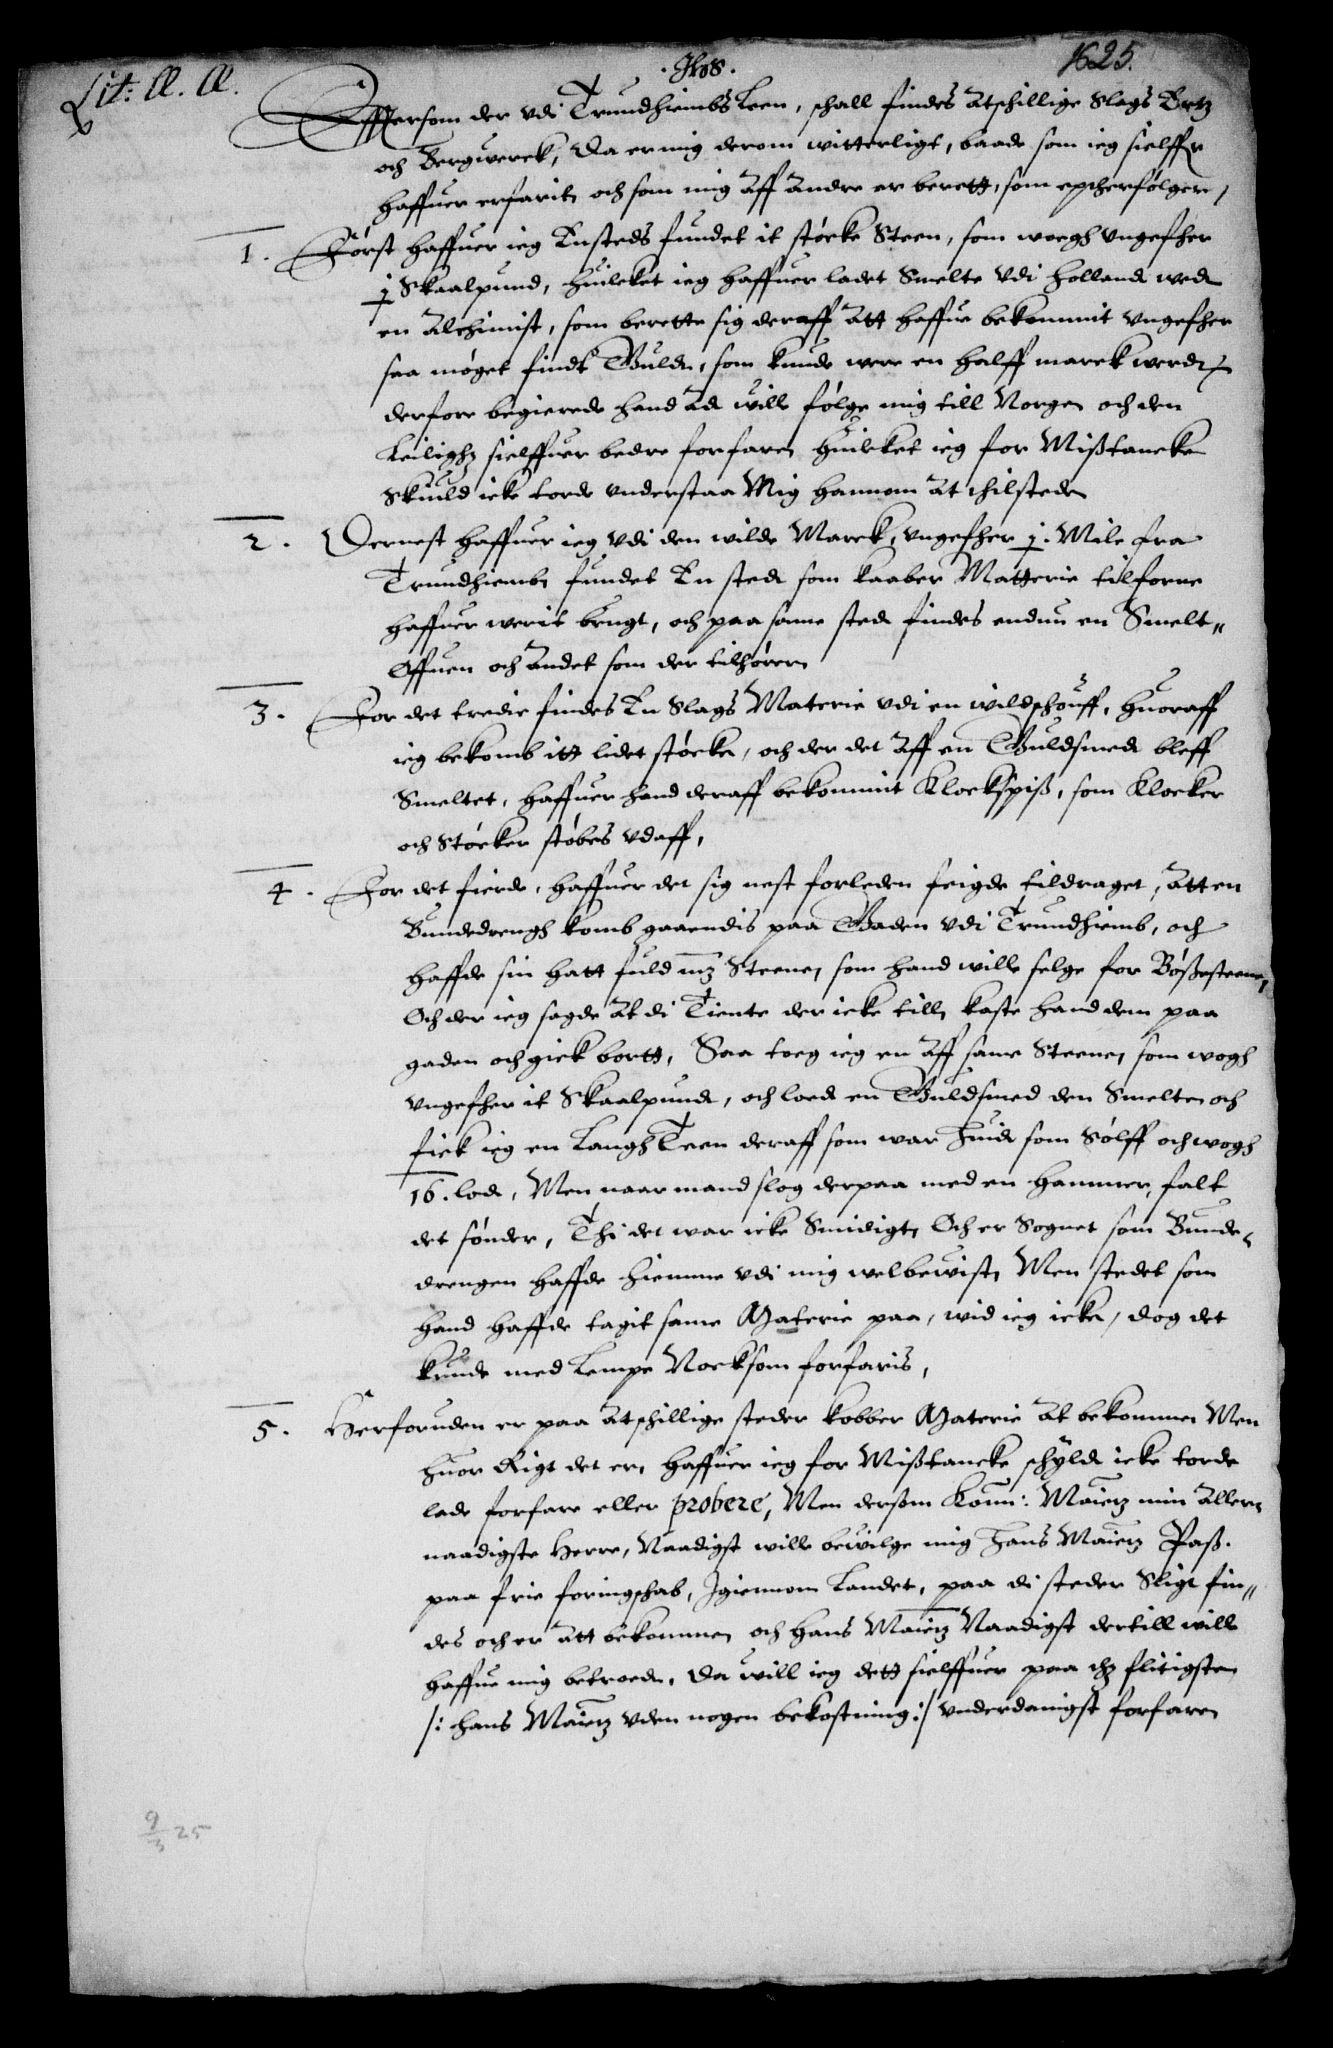 Lit: A. A.
. Jhs .
1625.
Effersom der vdi Trundhiembs Leen, schall findes atschillige Slags Ertz
och Bergwerck, Da er mig derom witterligt, baade som ieg sielffr
haffuer erfarit, och som mig aff andre er berett, som epcherfølger,
1. Først haffuer ieg Ensteds fundet it støcke Steen, som woegh vngefher
j Skaalpund, huilcket ieg haffuer ladet Smelte vdi Holland wed
en Alchimist, som berette sig deraff att haffue bekommit vngefher
saa møget findt Guld, som kunde were en halff marck werd,
derfore begierede hand ad wille følge mig till Norge, och den
Leilighz sielffuer bedre forfare, huilcket ieg for Mißtancke
Skuuld icke torde vnderstaa Mig hannom at thilstede
2. Dernest haffuer ieg vdi den wilde Marck, vngefher j. Mile fra
Trundhiemb, fundet En sted som kaaber Matterie tilforne
haffuer werit brugt, och paa same sted findes endnu en Smelt„
Offuen och andet som der tilhører,
3. For det tredie findes En Slags Materie vdi en wildschouff, huoraff
ieg bekomb itt lidet støcke, och der det aff en Guldsmed bleff
Smeltet, haffuer hand deraff bekommit Klockspiß, som Klocker
och Støcker støbes vdaff,
4. For det fierde, haffuer det sig nest forleden feigde tildraget, att en
Bundedrengh komb gaaendis paa Gaden vdi Trundhiemb, och
haffde sin hatt fuld mz Steene, som hand wille selge for Bößesteene,
Och der ieg sagde at di Tiente der icke till, kaste hand dem paa
gaden och gick bortt, Saa toeg ieg en aff same Steene, som wogh
vngefher it Skaalpund, och loed en Guldsmed den Smelte, och
fick ieg en Langh Teen deraff som war huid som Sølff och wogh
16. lod, Men naar mand slog derpaa med en hammer, falt
det sønder, Thi det war icke Smidigt, Och er Sognet som Bunde„
drengen haffde hiemme vdi mig welbewist, Men stedet som
hand haffde tagit same Materie paa, wid ieg icke, dog det
kunde med Lempe Nocksom forfaris,
5. Herforuden er paa atschillige steder kobber Materie at bekomme, Men
huor Rigt det er, haffuer ieg for Mißtancke schyld icke torde
lade forfare eller probere, Men dersom Konn: Maiesz min aller„
naadigste Herre, Naadigst wille bewilge mig hans Maiesz Paß.
paa frie foringschab, Igiennom Landet, paa di steder Sligt fin„
des och er att bekomme, och hans Maiesz Naadigst dertill wille
haffue mig betroed, Da will ieg dett sielffuer paa thz flitigste
/: hans Maiesz vden nogen bekostning :/ vnderdanigst forfare
9/3 25